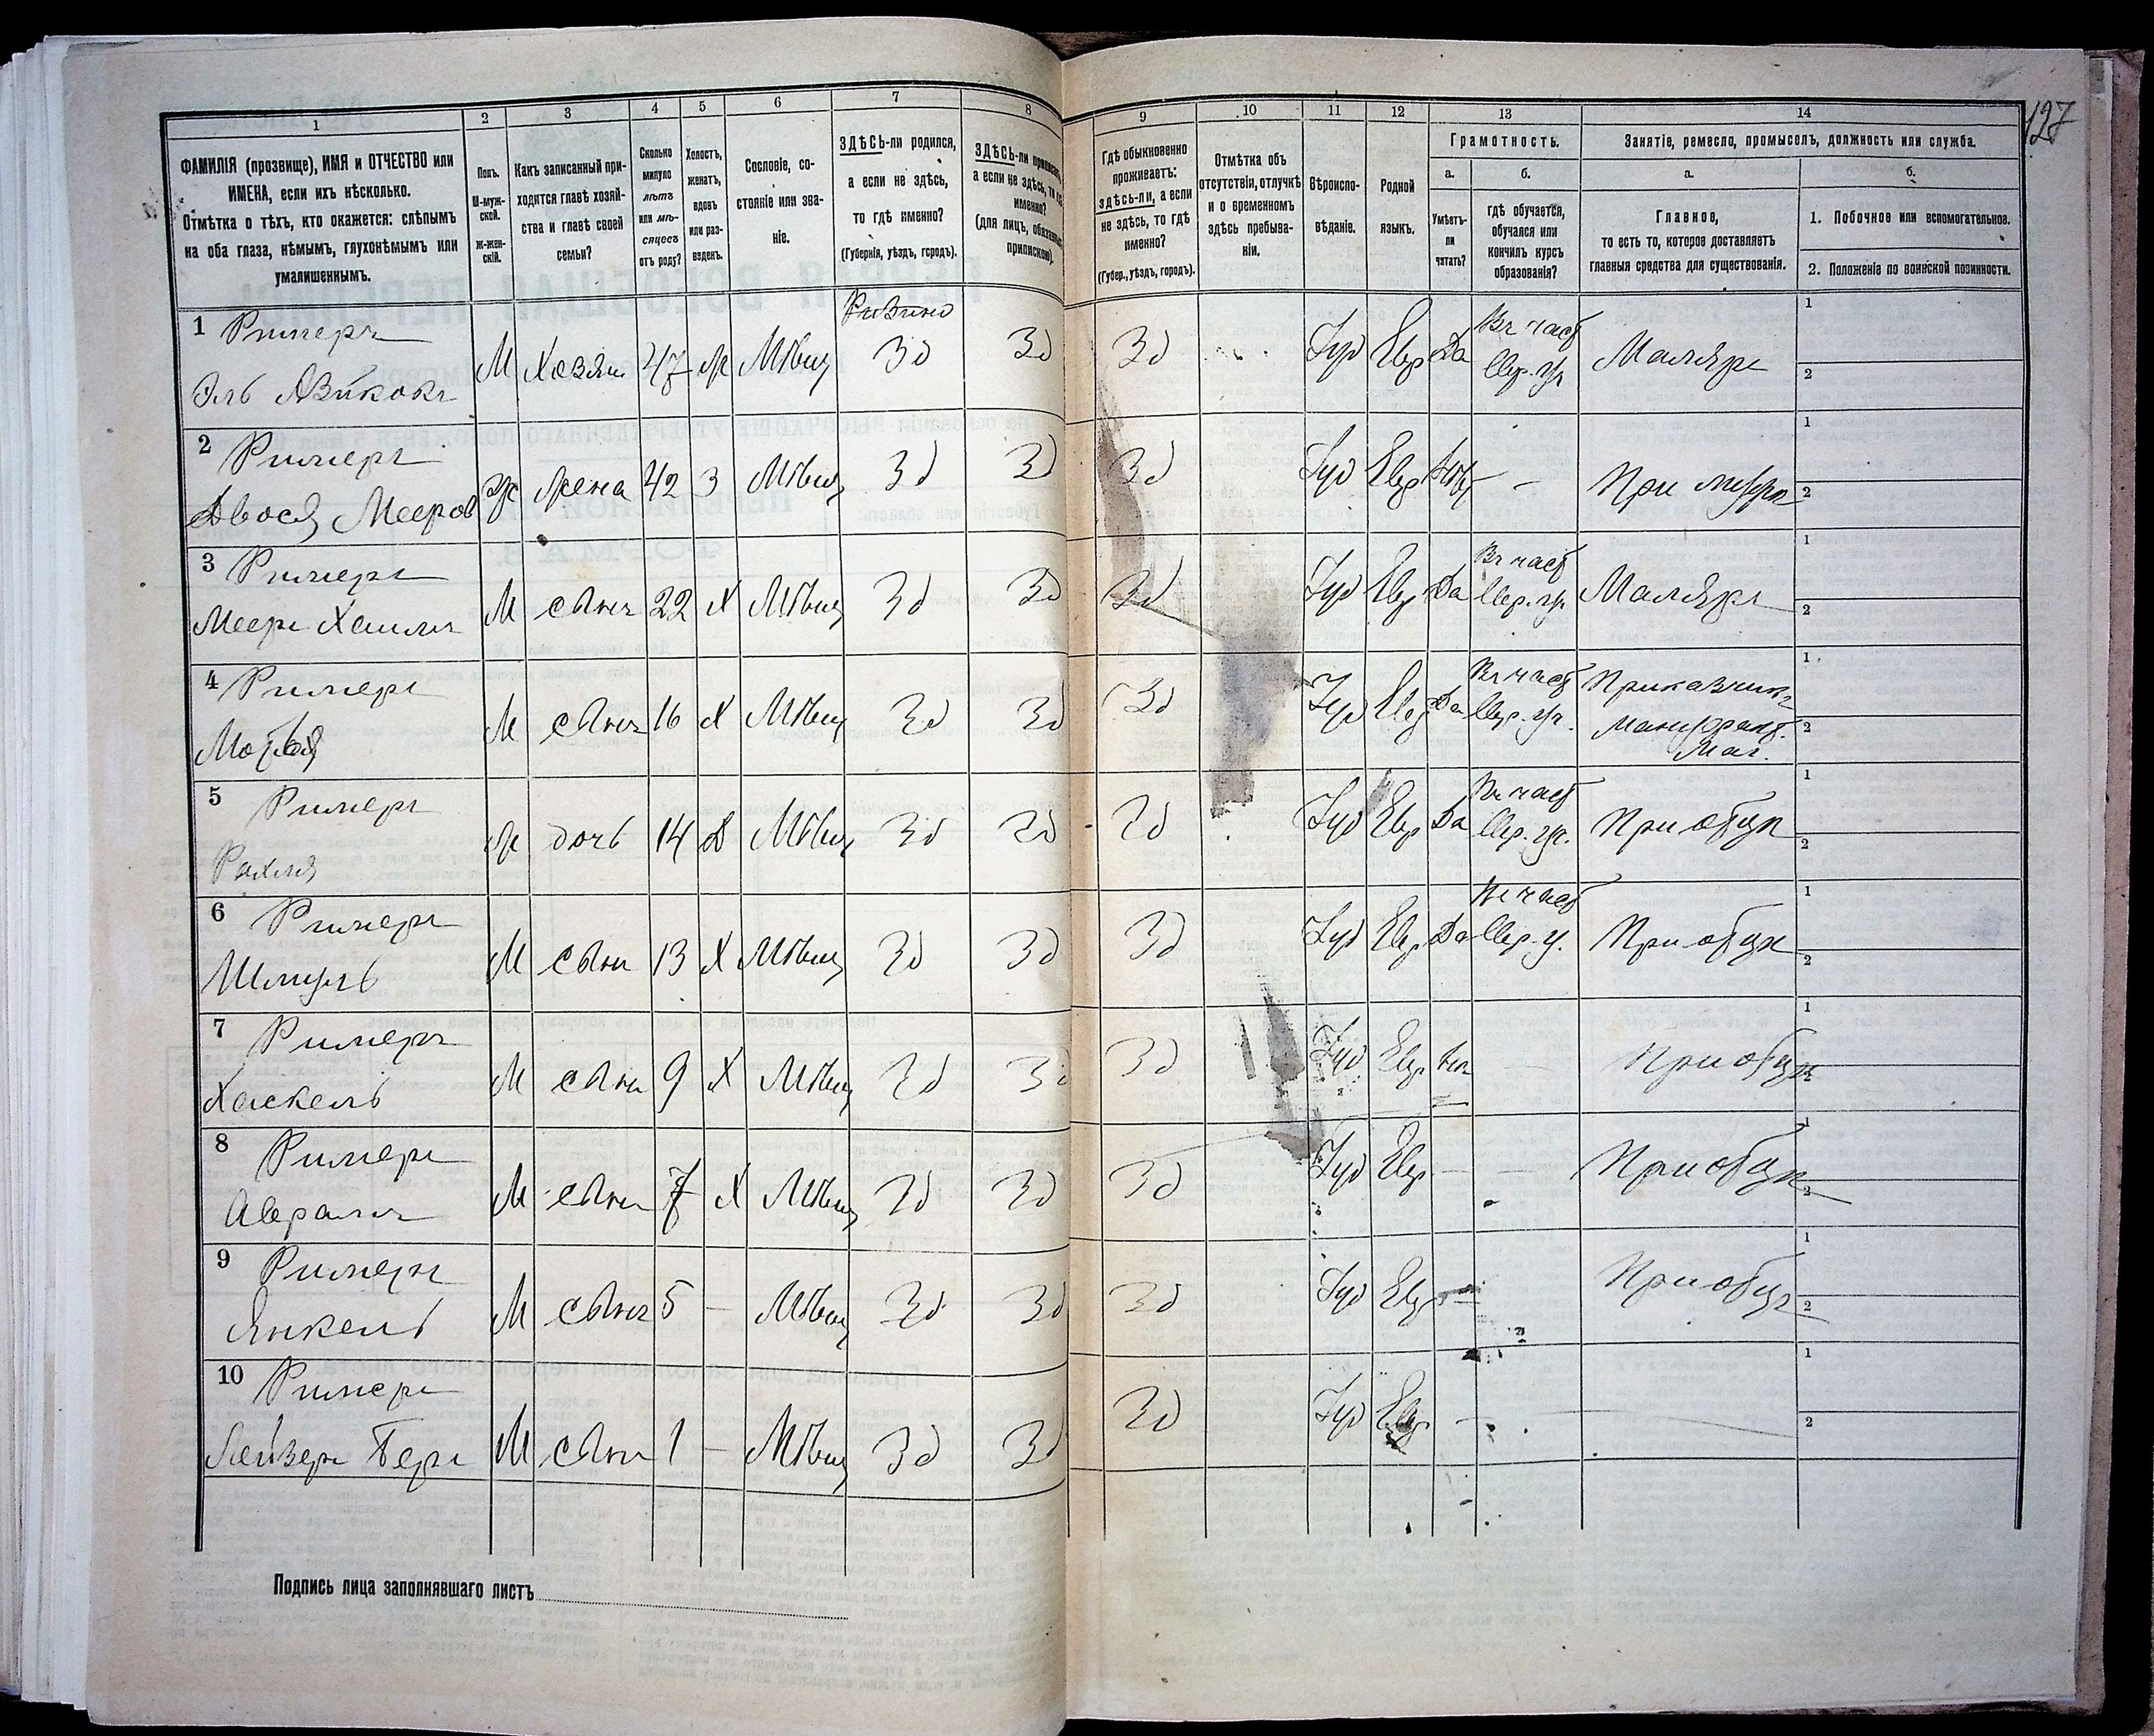 127
1 2 3 4 5 6 7 8 9 10 11 12 13 14
ФАМИЛІЯ (прозвище), ИМЯ и ОТЧЕСТВО или
ИМЕНА, если ихъ нѣсколько.
Отмѣтка о тѣхъ, кто окажется: слѣпымъ
на оба глаза, нѣмымъ, глухонѣмымъ или
умалишеннымъ.
Полъ.
М-муж-
ской.
Ж-жен-
скій.
Какъ записанный при-
ходится главѣ хозяй-
ства и главѣ своей
семьи?
Сколько
минуло
лѣтъ
или мѣ-
сяцевъ
отъ роду?
Холостъ,
женатъ,
вдовъ
или раз-
веденъ.
Сословіе, со-
стояніе или зва-
ніе.
ЗДѢСЬ-ли родился,
а если не здѣсь,
то гдѣ именно?
(Губернія, уѣздъ, городъ).
ЗДѢСЬ-ли приписанъ,
а если не здѣсь, то гдѣ
именно?
(для лицъ, обязанныхъ
припискою).
Гдѣ обыкновенно
проживаетъ:
здѣсь-ли, а если
не здѣсь, то гдѣ
именно?
(Губер., уѣздъ, городъ).
Отмѣтка объ
отсутствіи, отлучкѣ
и о временномъ
здѣсь пребыва-
ніи.
Вѣроиспо-
вѣданіе.
Родной
языкъ.
Грамотность.
а.
Умѣетъ-
ли
читать?
б.
гдѣ обучается,
обучался или
кончилъ курсъ
образованія?
Занятіе, ремесло, промыселъ, должность или служба.
а.
Главное,
то есть то, которое доставляетъ
главныя средства для существованія.
б.
1. Побочное или вспомогательное.
2. Положеніе по воинской повинности.
1 Римеръ
М Хозяин 47 Ж Мѣщ Зд Зд Зд Іуд Евр Да Въ част Евр. уч Маляръ 1 2
2 Римеръ
Двося Мееров Ж жена 42 З Мѣщ Зд Зд Зд Іуд Евр Нѣт — При мужѣ 1 2
3 Римеръ
Мееръ Хаимъ М сынъ 22 Х Мѣщ Зд Зд Зд Іуд Евр Да Въ част Евр. уч. Маляръ 1 2
4 Римеръ
М сынъ 16 Х Мѣщ Зд Зд Зд Іуд Евр Да Въ част Евр. уч. Приказчикъ
мануфакт.
маг. 1 2
5 Римеръ
Рахля Ж дочь 14 Д Мѣщ Зд Зд Зд Іуд Евр Да Въ част Евр. уч. При отцѣ 1 2
6 Римеръ
Шмуль М сынъ 13 Х Мѣщ Зд Зд Зд Іуд Евр Да Въ част Евр. у. При отцѣ 1 2
7 Римеръ
Хаскель М сынъ 9 Х Мѣщ Зд Зд Зд Іуд Евр — При отцѣ 1 2
8 Римеръ
Аврамъ М сынъ 7 Х Мѣщ Зд Зд Зд Іуд Евр — — При отцѣ 1 2
9 Римеръ
Янкель М сынъ 5 — Мѣщ Зд Зд Зд Іуд Евр — При отцѣ 1 2
10 Римеръ
Лейзеръ Беръ М сынъ 1 — Мѣщ Зд Зд Зд Іуд Евр — 1 2
Подпись лица заполнявшаго листъ